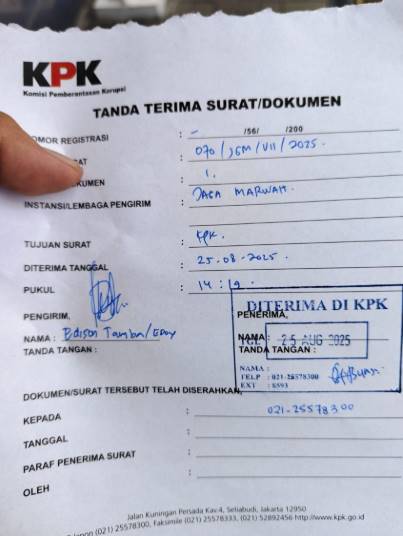 KPK
Komisi Pemberantasan Korupsi
TANDA TERIMA SURAT/DOKUMEN
NOMOR REGISTRASI : - /56/ /200
RAT : 070/JGM/VII/2025.
KUMEN : 1.
INSTANSI/LEMBAGA PENGIRIM : JAGA MARWAH.
TUJUAN SURAT : KPK.
DITERIMA TANGGAL : 25-08-2025.
PUKUL : 14:19.
PENGIRIM,
NAMA : Edison Tamba/Edoy
TANDA TANGAN :
PENERIMA,
NAMA :
TANDA TANGAN :
DITERIMA DI KPK
TGL 25 AUG 2025
NAMA :
TELP : 021-25578300
EXT : 8593
DOKUMEN/SURAT TERSEBUT TELAH DISERAHKAN,
021-25578300
KEPADA :
TANGGAL :
PARAF PENERIMA SURAT :
OLEH :
Jalan Kuningan Persada Kav.4, Setiabudi, Jakarta 12950
(021) 25578300, Faksimile (021) 25578333, (021) 52892456 http://www.kpk.go.id